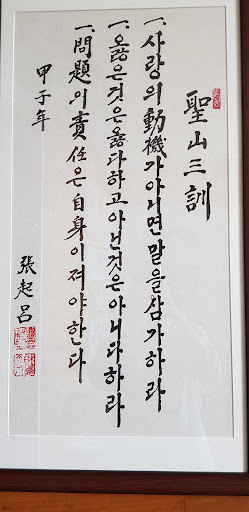 聖山三訓
一. 사랑의 動機가 아니면 말을 삼가하라
一. 옳은 것은 옳다하고 아닌것은 아니다하라
一. 問題의 責任은 自身이 져야한다
甲子年
張起呂